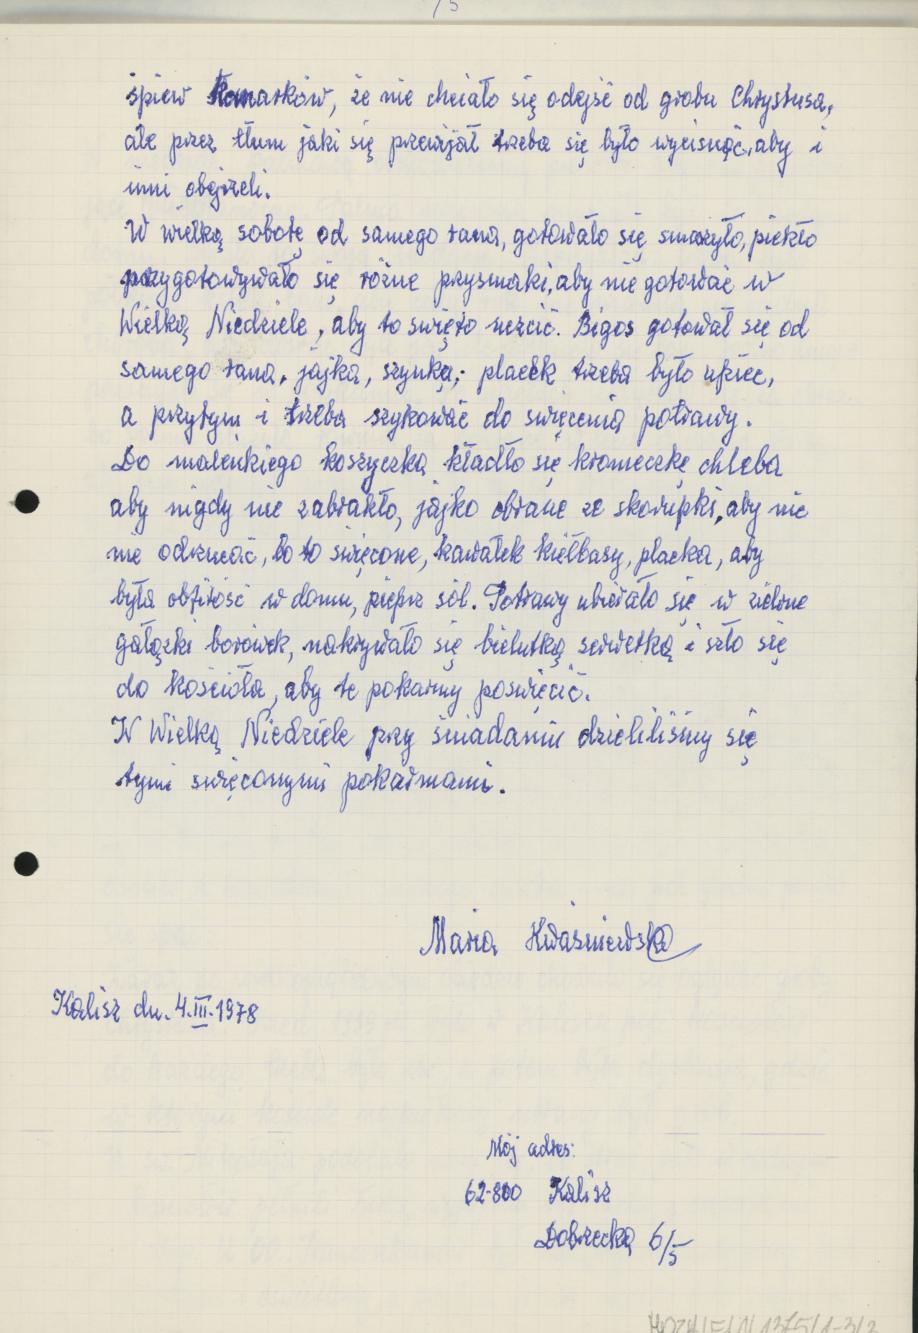 śpiew kanarków, że nie chciało się odejść od grobu Chrystusa,
ale przez tłum jaki się przewijał trzeba się było wycisnąć, aby i
inni obejrzeli.
W wielką sobotę od samego rana, gotowało się smażyło, piekło
przygotowywało się różne przysmaki, aby nie gotować w
Wielką Niedzielę, aby to święto uczcić. Bigos gotował się od
samego rana, jajka, szynka, placek trzeba było upiec,
a przytym i trzeba szykować do święcenia potrawy.
Do maleńkiego koszyczka kładło się kromeczkę chleba
aby nigdy nie zabrakło, jajko obrane ze skorupki, aby nic
nie odrzucać, bo to święcone, kawałek kiełbasy, placka, aby
była obfitość w domu, pieprz sól. Potrawy ubierało się w zielone
gałązki borówek, nakrywało się bielutką serwetką i szło się
do kościoła, aby te pokarmy poświęcić.
W Wielką Niedzielę przy śniadaniu dzieliliśmy się
tymi święconymi pokarmami.
Maria Kwaśniewska
Kalisz dn. 4.III.1978
Mój adres:
62-800 Kalisz
Dobrzecka 6/5